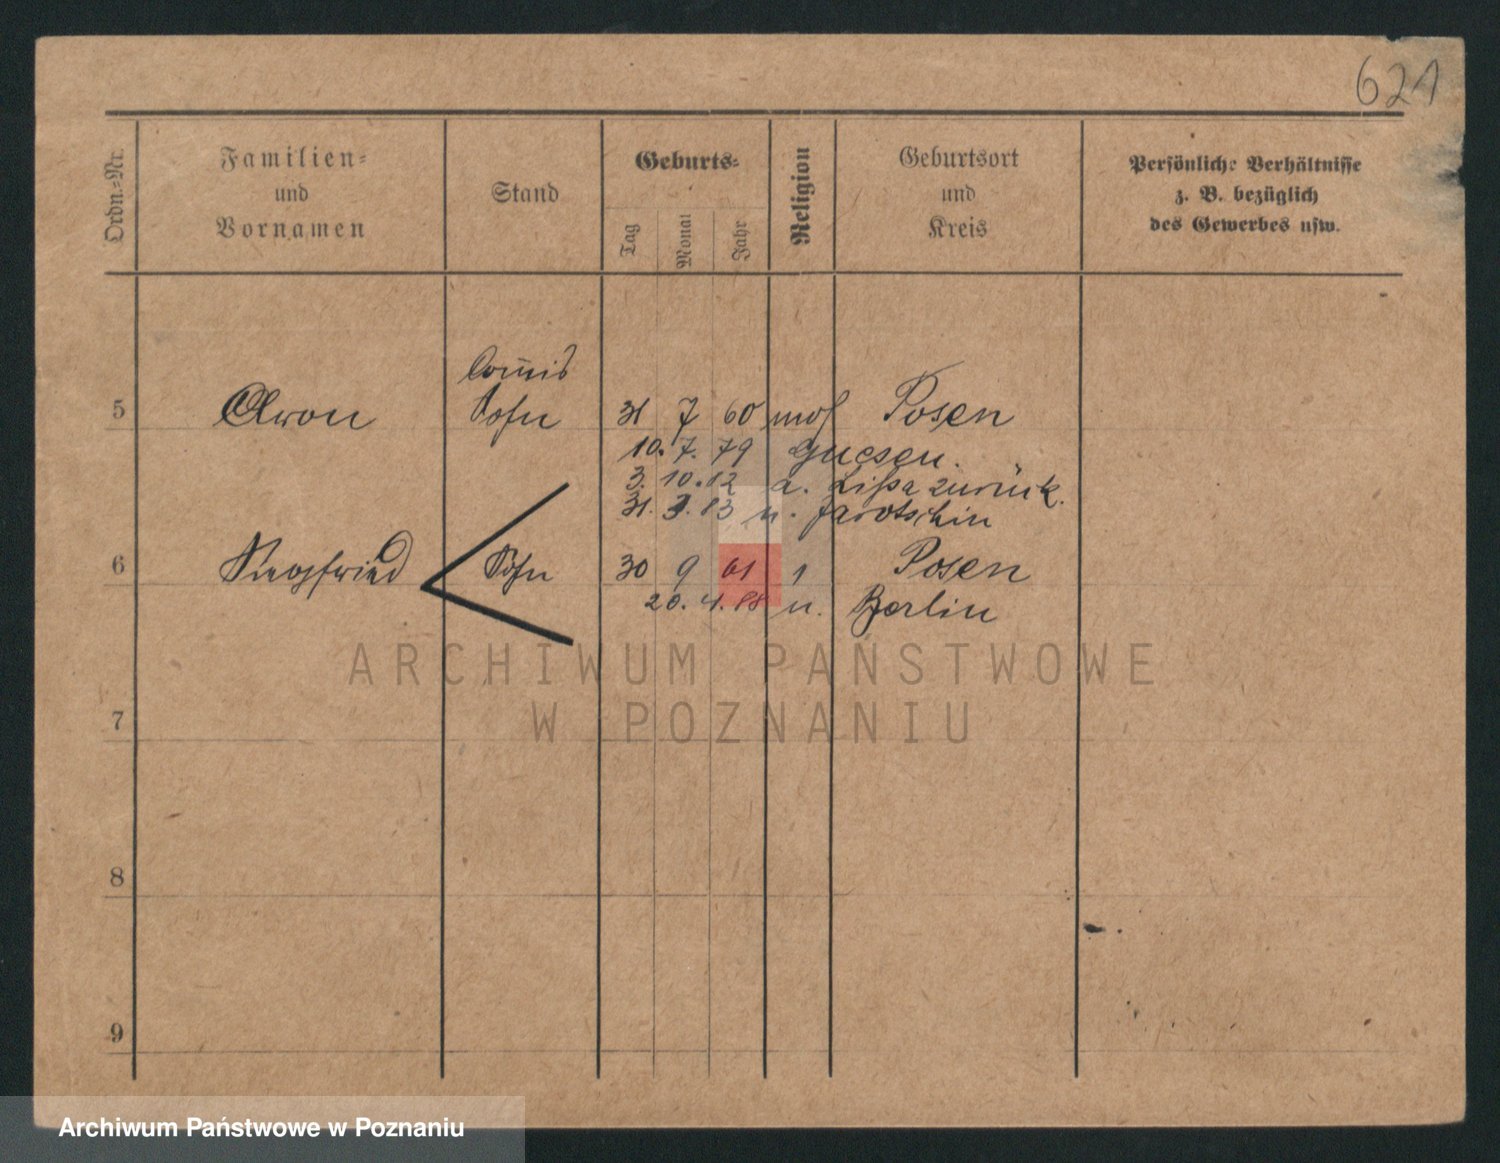 621
Ordn.-Nr.
Familien-
und
Vornamen
Stand
Geburts-
Tag
Monat
Jahr
Religion
Geburtsort
und
Kreis
Persönliche Verhältnisse
z. B. bezüglich
des Gewerbes usw.
Com̄is
5 Aron Sohn 31 7 60 mos Posen
10. 7. 79 Gnesen.
3. 10. 82 a. Lissa zurück.
31. 3. 83 n. Jarotschin
6 Siegfried Sohn 30 9 61 1 Posen
20. 4. 88 n. Berlin
ARCHIWUM PAŃSTWOWE
W POZNANIU
7
8
9
Archiwum Państwowe w Poznaniu